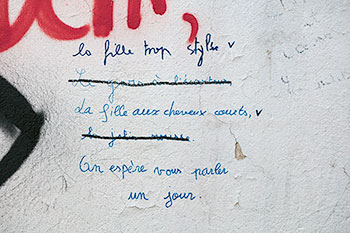 la fille trop stylée v
Le gars à
La fille aux cheveux courts, v
Le joli
On espère vous parler
un jour.